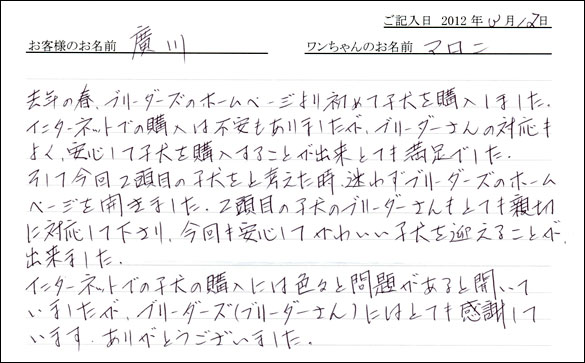 ご記入日 2012年 月12日
お客様のお名前 廣川 ワンちゃんのお名前 マロニ
去年の春、ブリーダーズのホームページより初めて子犬を購入しました。
インターネットでの購入は不安もありましたが、ブリーダーさんの対応も
よく、安心して子犬を購入することが出来とても満足でした。
そして今回2頭目の子犬をと考えた時、迷わずブリーダーズのホーム
ページを開きました。2頭目の子犬のブリーダーさんもとても親切
に対応して下さり、今回も安心してかわいい子犬を迎えることが
出来ました。
インターネットでの子犬の購入には色々と問題があると聞いて
いましたが、ブリーダーズ(ブリーダーさん)にはとても感謝して
います。ありがとうございました。